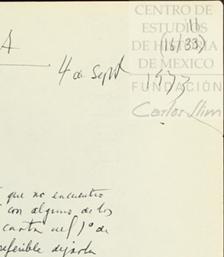 CENTRO DE
ESTUDIOS
DE HISTORIA
DE MEXICO
FUNDACIÓN
Carlos Slim
11
(16/33)
A
4 de Sept 1933
que no encuentro
con alguno de los
carta del
preferible dejarla